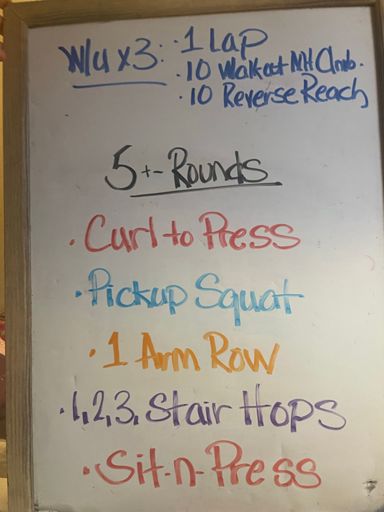 W/u x3: · 1 Lap
· 10 Walkout Mt Clmb.
· 10 Reverse Reach
5 +- Rounds
· Curl to Press
· Pickup Squat
· 1 Arm Row
· 1, 2, 3, Stair Hops
· Sit-n-Press